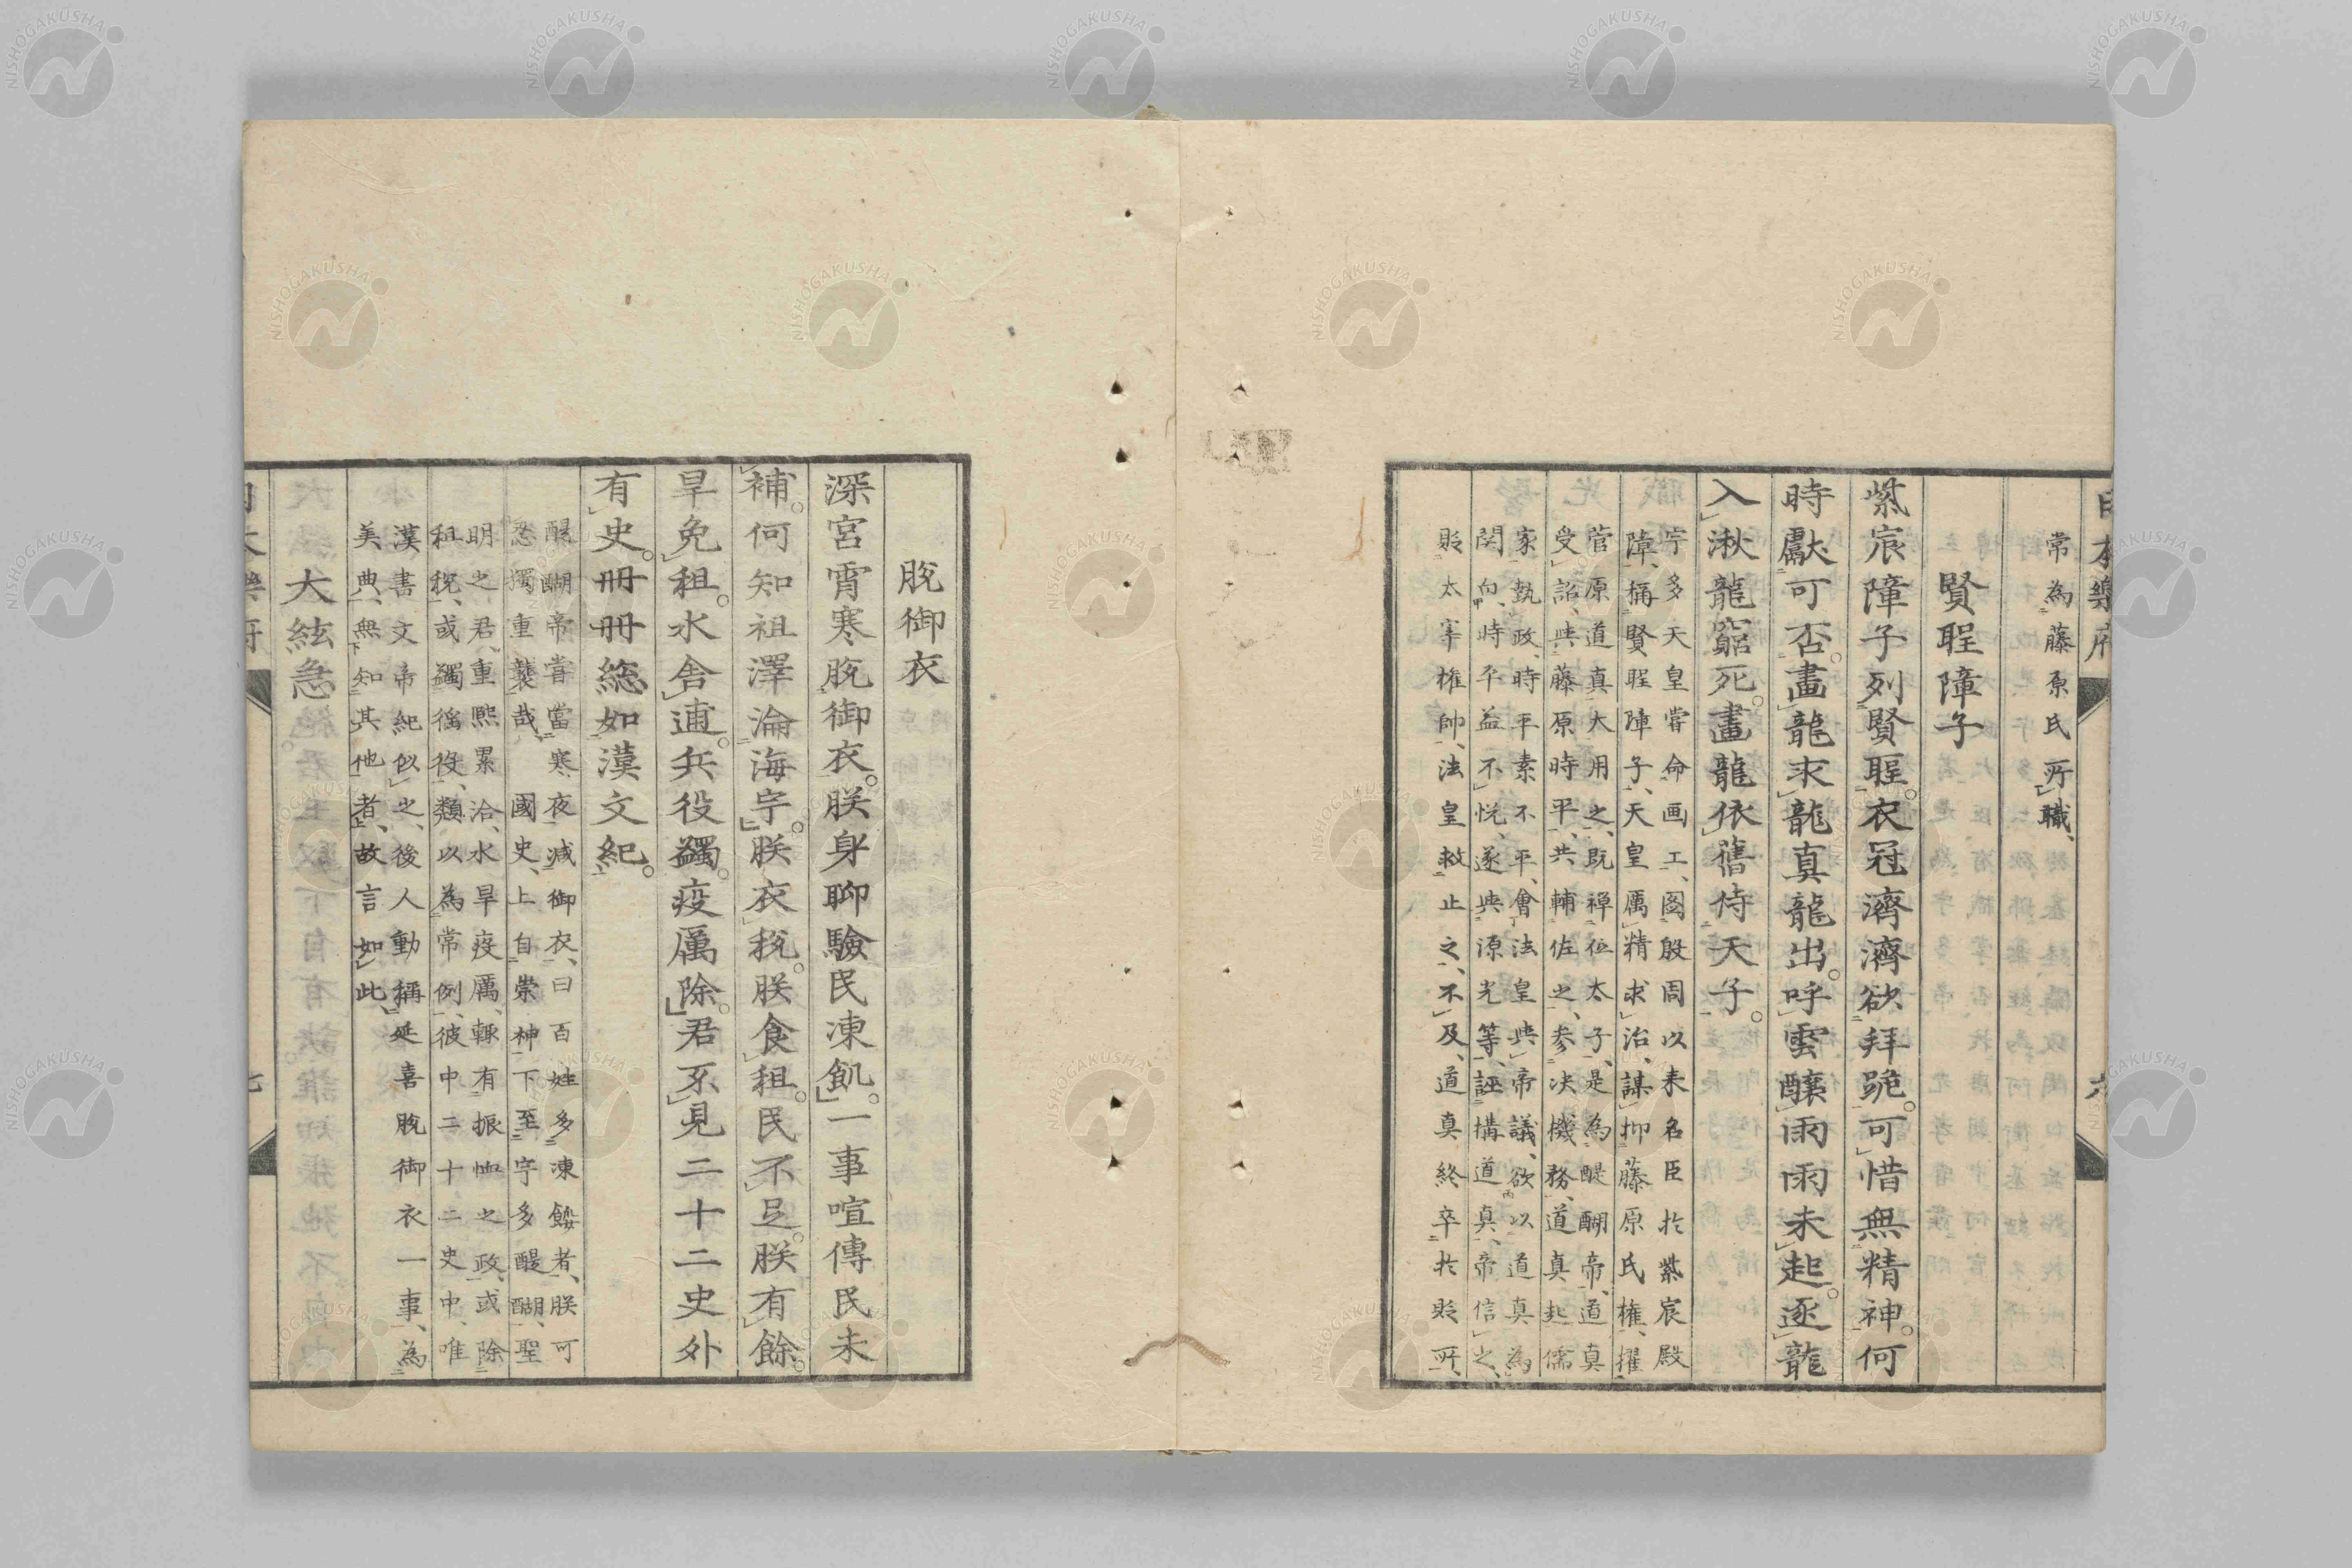 日本樂府
六
常為藤原氏所職、
賢聖障子
紫宸障子列賢聖。衣冠濟濟欲拜跪。可惜無精神。何
時獻可否。畫龍求龍真龍出。呼雲釀雨雨未起。逐龍
入湫龍窮死。畫龍依舊侍天子。
宇多天皇嘗命画工、图殷周以来名臣於紫宸殿
障、稱賢聖障子、天皇厲精求治、謀抑藤原氏權、擢
菅原道真大用之、既禅位太子、是為醍醐帝、道真
受詔、與藤原時平、共輔佐之、参决機務、道真起儒
家執政、時平素不平、會法皇與帝議、欲以道真為
関白、時平益不悦、遂與源光等、誣構道真、帝信之、
貶太宰權帥、法皇救止之、不及、道真終卒於貶所、
脱御衣
深宮霄寒脱御衣。朕身聊驗民凍飢。一事喧傳民未
補。何知祖澤淪海宇。朕衣税。朕食租。民不足。朕有餘。
旱免租。水舎逋。兵役蠲。疫厲除。君不見二十二史外
有史。冊冊総如漢文紀。
醍醐帝嘗當寒夜減御衣、曰百姓多凍餒者、朕可
忍獨重襲哉、國史、上自崇神下至宇多醍醐、聖
明之君、重熈累洽、水旱疫厲、輙有振恤之政、或除
租税、或蠲徭役、類以為常例、彼中二十二史中、唯
漢書文帝紀似之、後人動稱延喜脱御衣一事、為
美典、無知其他者、故言如此、
大絃急
七